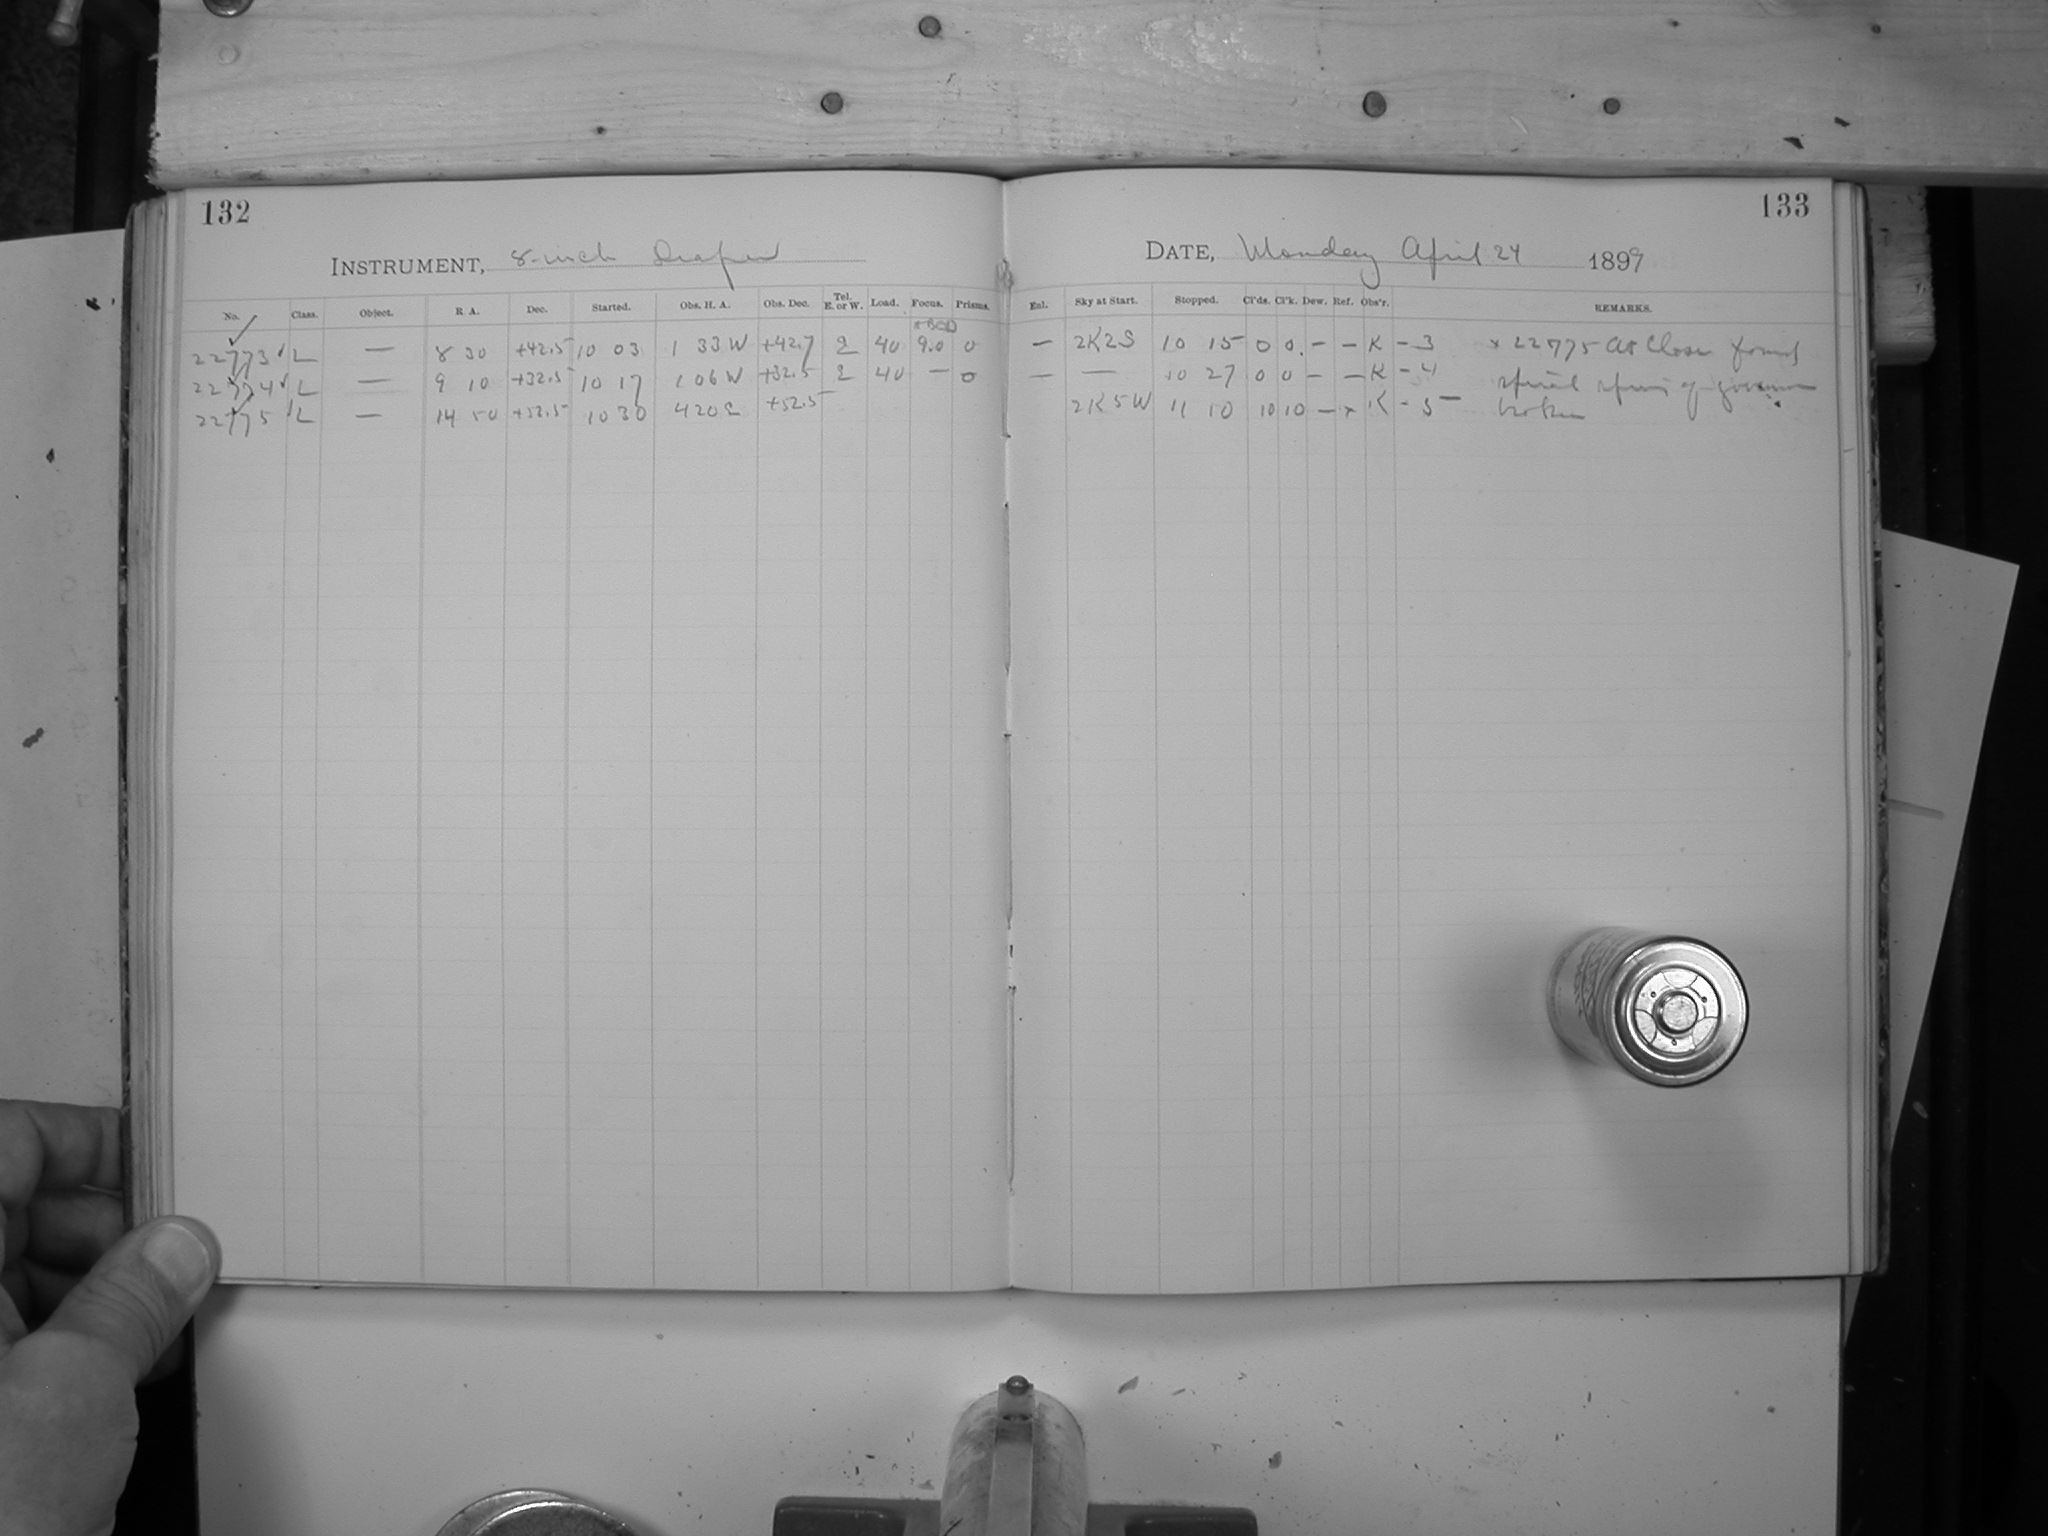 132
133
INSTRUMENT, 8-inch Draper
DATE, Monday April 24 1899
No. Class. Object. R A. Dec. Started. Obs. H. A. Obs. Dec. Tel. E. or W. Load. Focus. Prisms.
Enl. Sky at Start. Stopped. Cl'ds. Cl'k. Dew. Ref. Obs'r. REMARKS.
22773 L — 8 30 +42.5 10 03 1 33 W +42.7 E 40 9.0 0 — 2K2S 10 15 0 0 — — K - 3 x 22775 At Close found
22774 L — 9 10 +32.5 10 17 1 06 W +32.5 E 40 — 0 — — 10 27 0 0 — — K - 4 spiral spring of governor
22775 L — 14 50 +52.5 10 30 4 20 E +52.5 2K5W 11 10 10 10 — x K - 5 broken